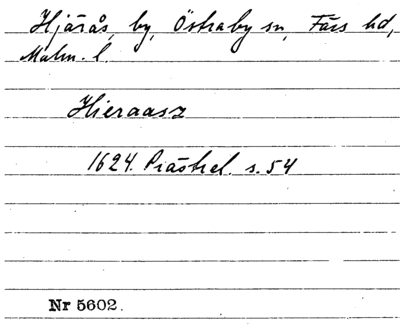 Hjärås, by, Östraby sn, Färs hd,
Malm. l.
Hieraasz
1624. Prästrel. s. 54
Nr 5602.